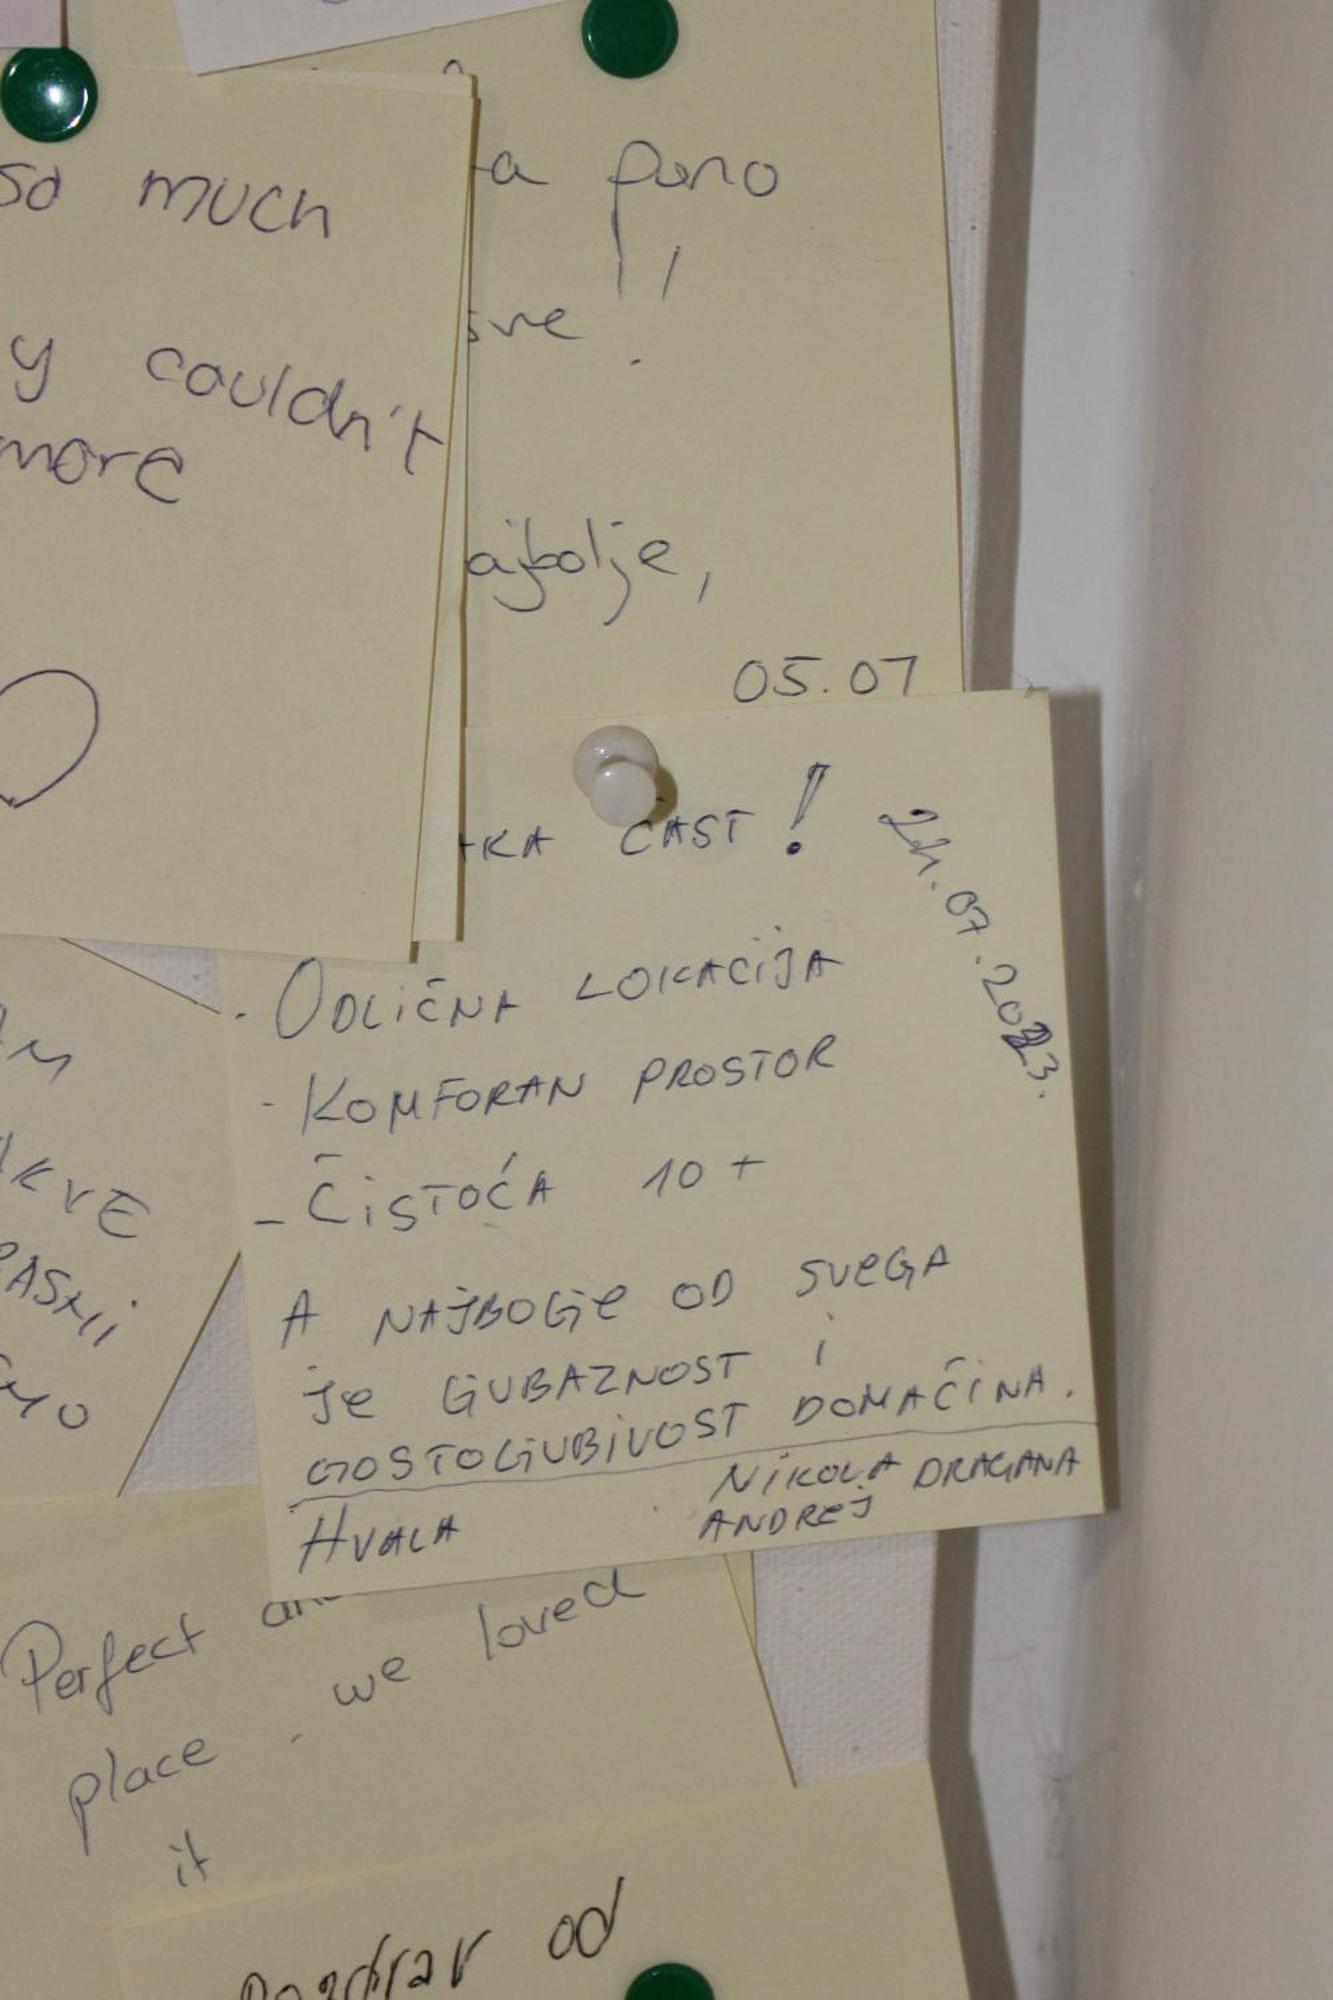 so much
y couldn't
more
a puno
sve !!
ajbolje,
05.07
KA ČAST!
21.07.2023.
- ODLIČNA LOKACIJA
- KOMFORAN PROSTOR
- ČISTOĆA 10+
A NAJBOLJE OD SVEGA
je LJUBAZNOST i
GOSTOLJUBIVOST DOMAČINA.
HVALA
NIKOLA DRAGANA
ANDREJ
KVE
ASNI
MO
Perfect an
place. we loved
it
Pozdrav od